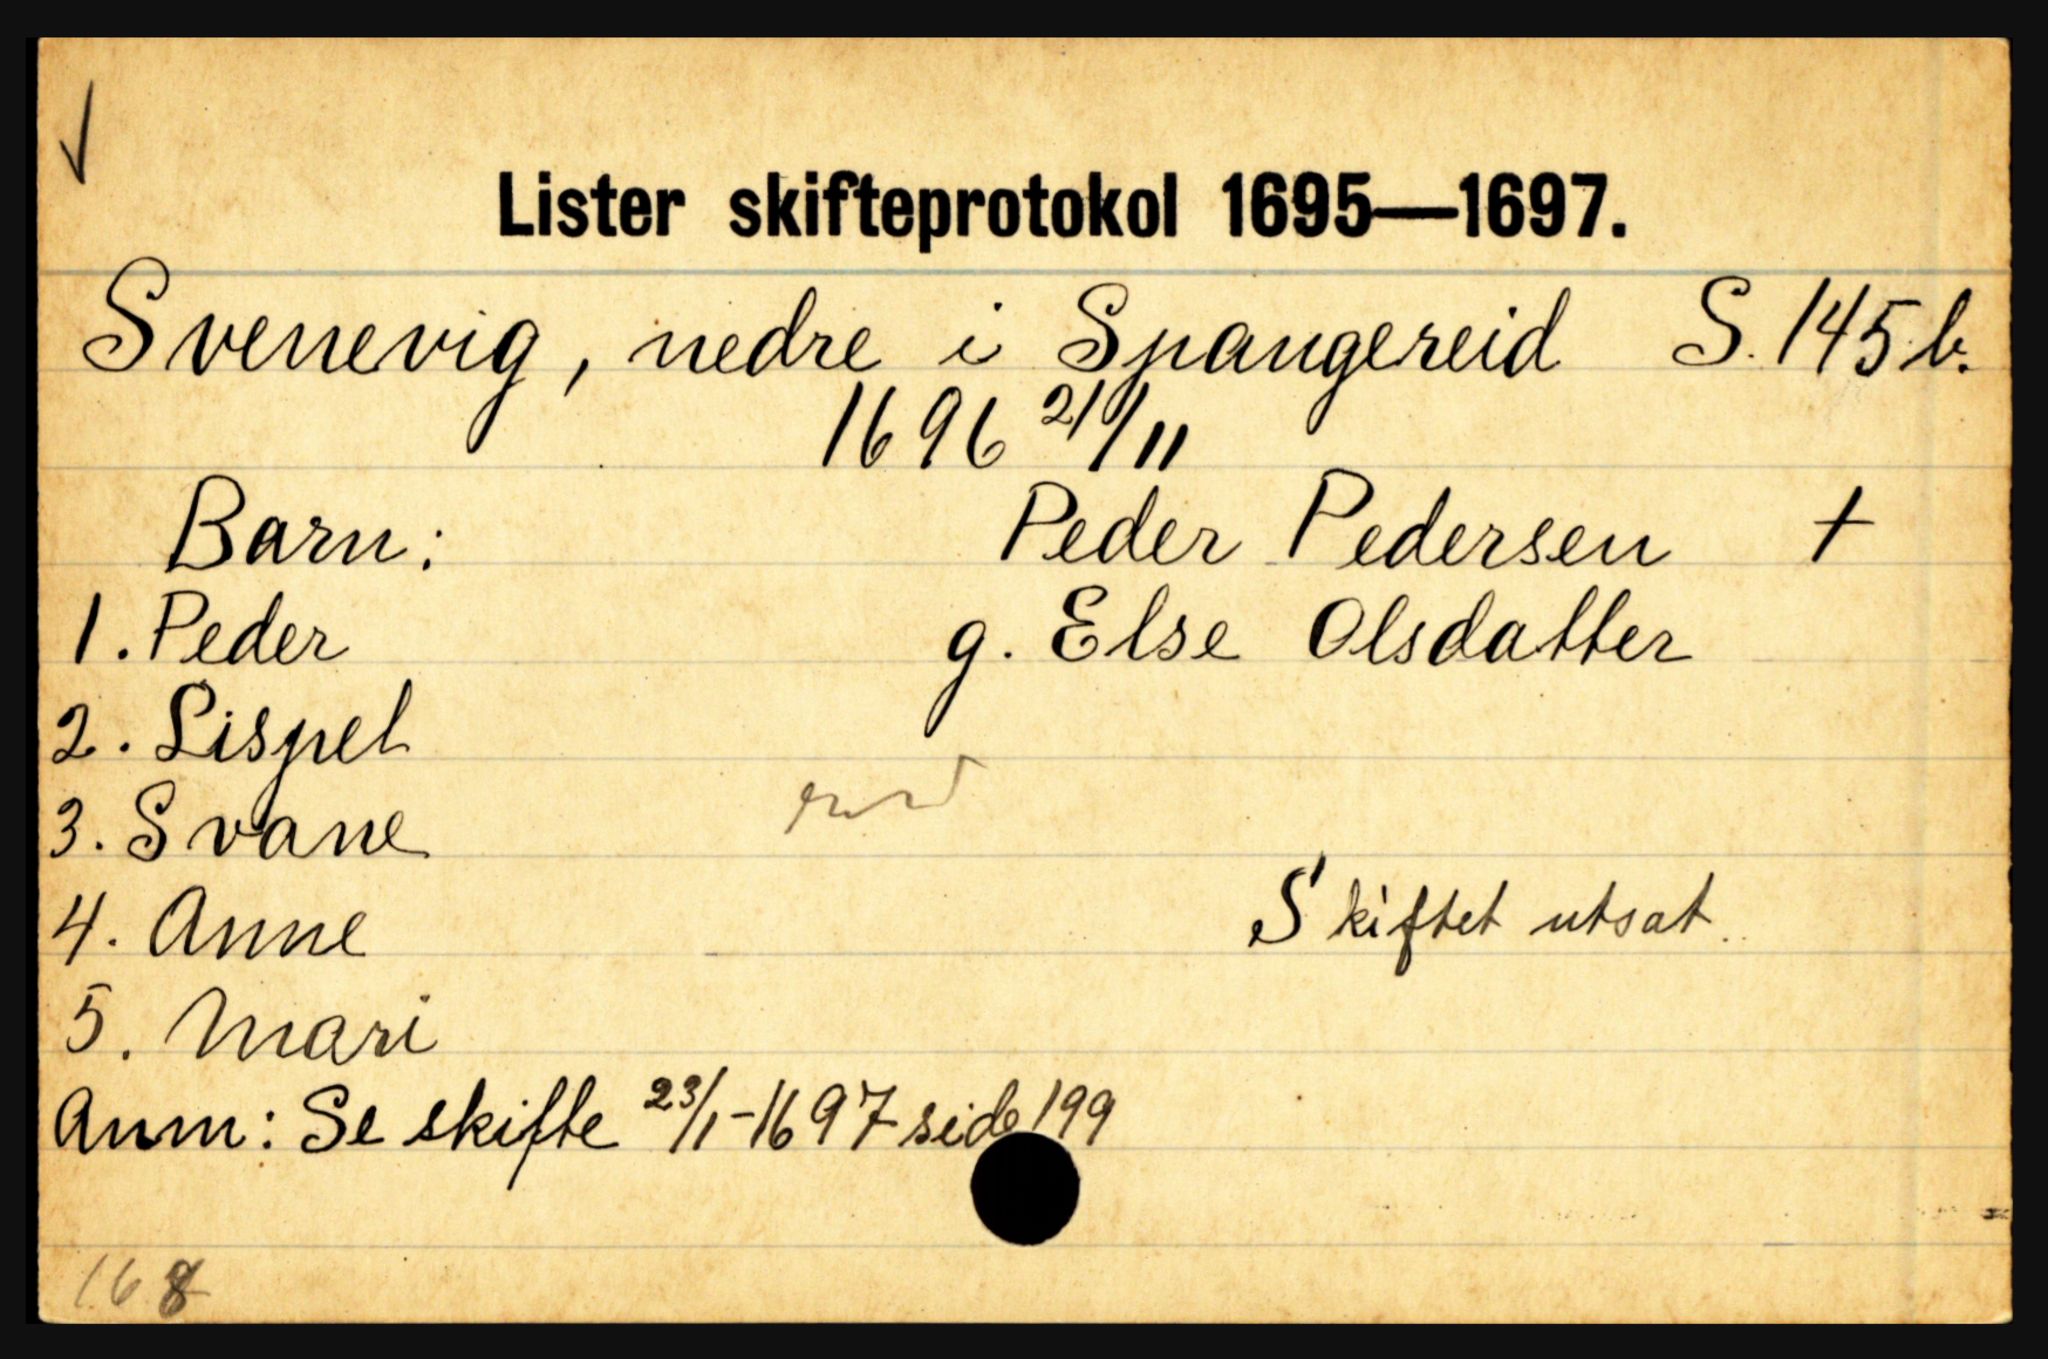 Lister skifteprotokol 1695—1697.
Svenevig, nedre i Spangereid S. 145 b.
1696 21/11
Barn: Peder Pedersen +
1. Peder g. Else Olsdatter
2. Lispel
3. Svane
4. Anne Skiftet utsat.
5. Mari
Anm: Se skifte 23/1-1697 side 199
168